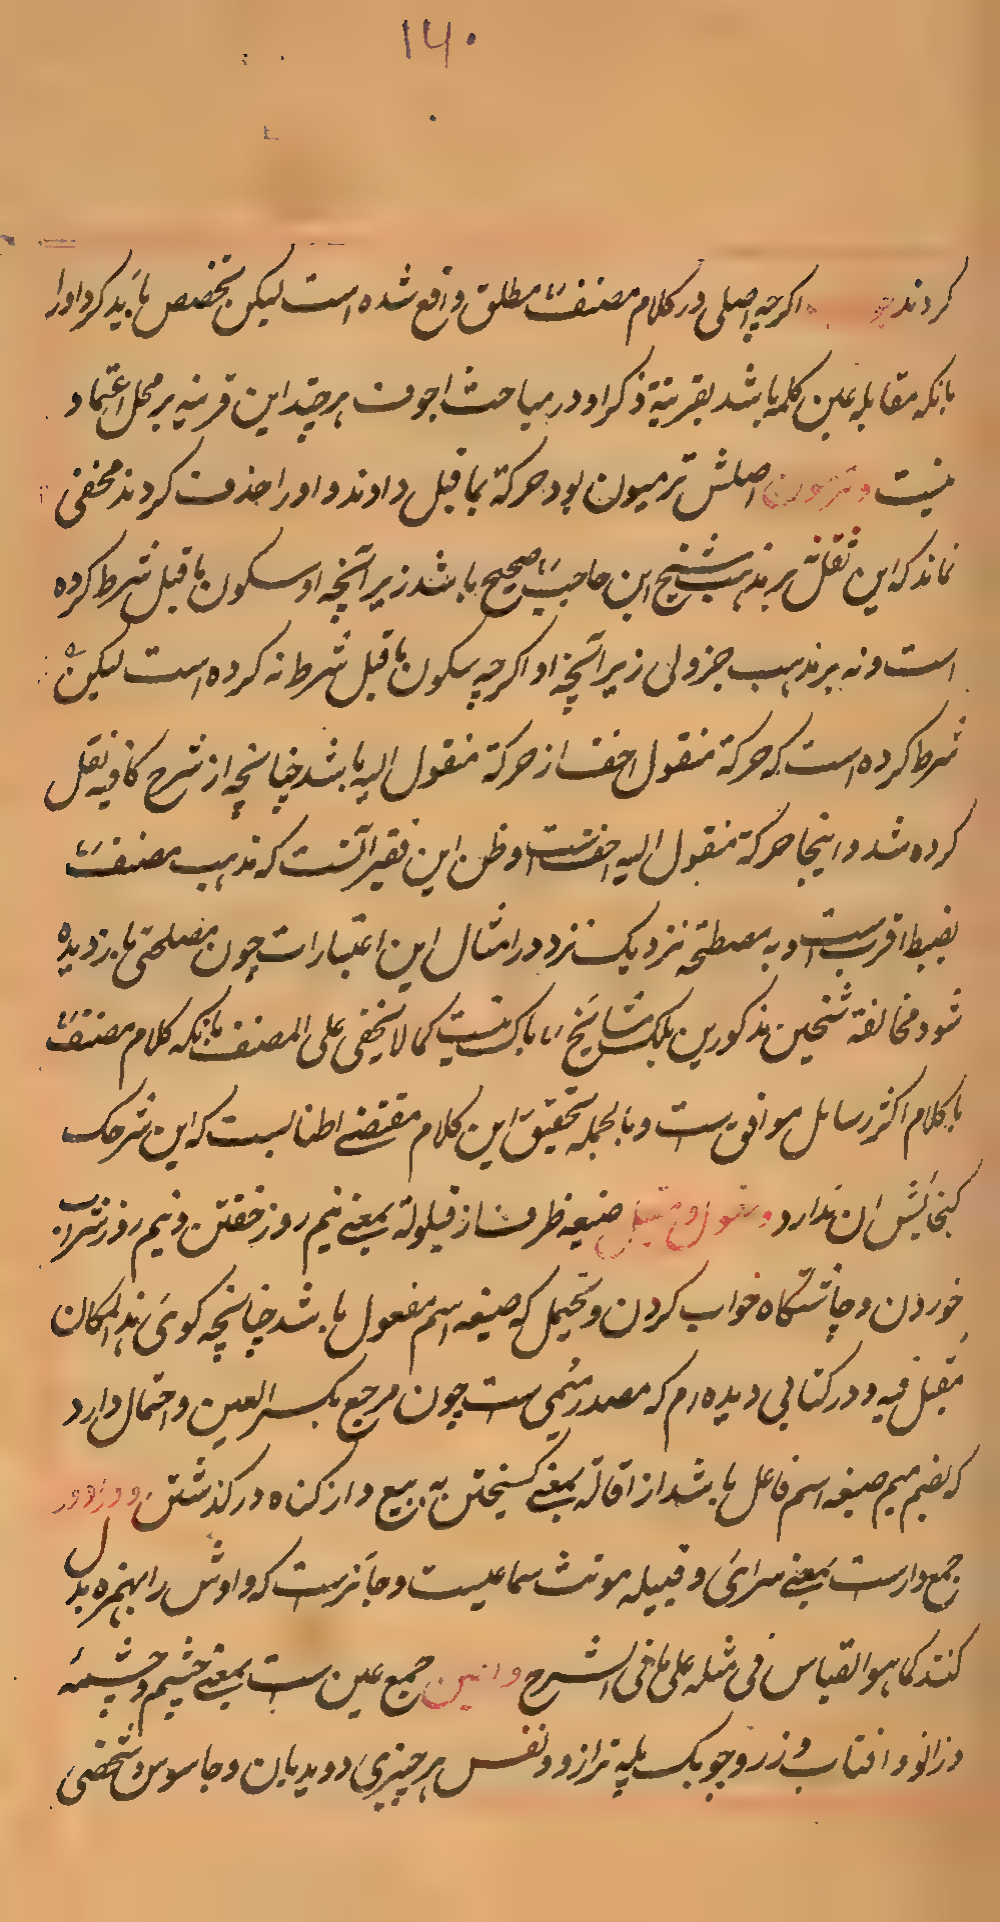 ۱۴۰
کردند اکرچه اصلی در کلام مصنف مطلق واقع شده است لیکن تخصیص باید کرد اورا
بانکه مقابله عین کلمه باشد بقرینة ذکر او در مباحث اجوف هر چند این قرینه بر محل اعتماد
نیست وترمون اصلش ترمیون بود حرکة بما قبل دادند و اورا حذف کردند مخفی
نماند که این نقل بر مذهب شیخ ابن حاجب صحیح باشد زیرانچه او سکون ما قبل شرط کرده
است و نه بر مذهب جزولی زیرانچه او اکرچه سکون ما قبل شرط نه کرده است لیکن
شرط کرده است که حرکة منقول اخف از حرکة منقول الیه باشد چنانچه از شرح کافیه نقل
کرده شد و اینجا حرکة منقول الیه اخفست و ظن این فقیر آنست که مذهب مصنف
بضبط اقربست و به مصطلحه نزدیک نزد در امثال این اعتبارات چون مصلحتی بارزدیده
شود مخالفة شیخین مذکورین بلکه مشایخ باک نیست کما لا یخفی علی المصنف بانکه کلام مصنف
با کلام اکثر رسایل موافق ست و بالجمله تحقیق این کلام مقتضے اطنابست که این شرحک
کنجائش ان ندارد ومقول ومقیل صیغه ظرف از قیلولة بمعنے نیم روز خفتن و نیم روز شراب
خوردن و چاشتکاه خواب کردن و یحتمل که صیغه اسم مفعول باشد چنانچه کوئ هذا المکان
مقیل فیه و در کتابی دیده ام که مصدر میمی ست چون مرجع بکسر العین و احتمال دارد
که بضم میم صیغه اسم فاعل باشد از اقالة بمعنے کسیختن به بیع و از کناه در کذشتن وادور
جمع دارست بمعنے سرائ و قبیله مونث سماعیست و جائزست که واوش را بهمزه بدل
کنند کما هو القیاس فی مثله علی ما فی الشرح واعین جمع عین ست بمعنے چشم و چشمهٔ
و زانو و افتاب و زر و چوبک پلیه ترازو و نفس هر چیزی و دیدبان و جاسوس و شخصی